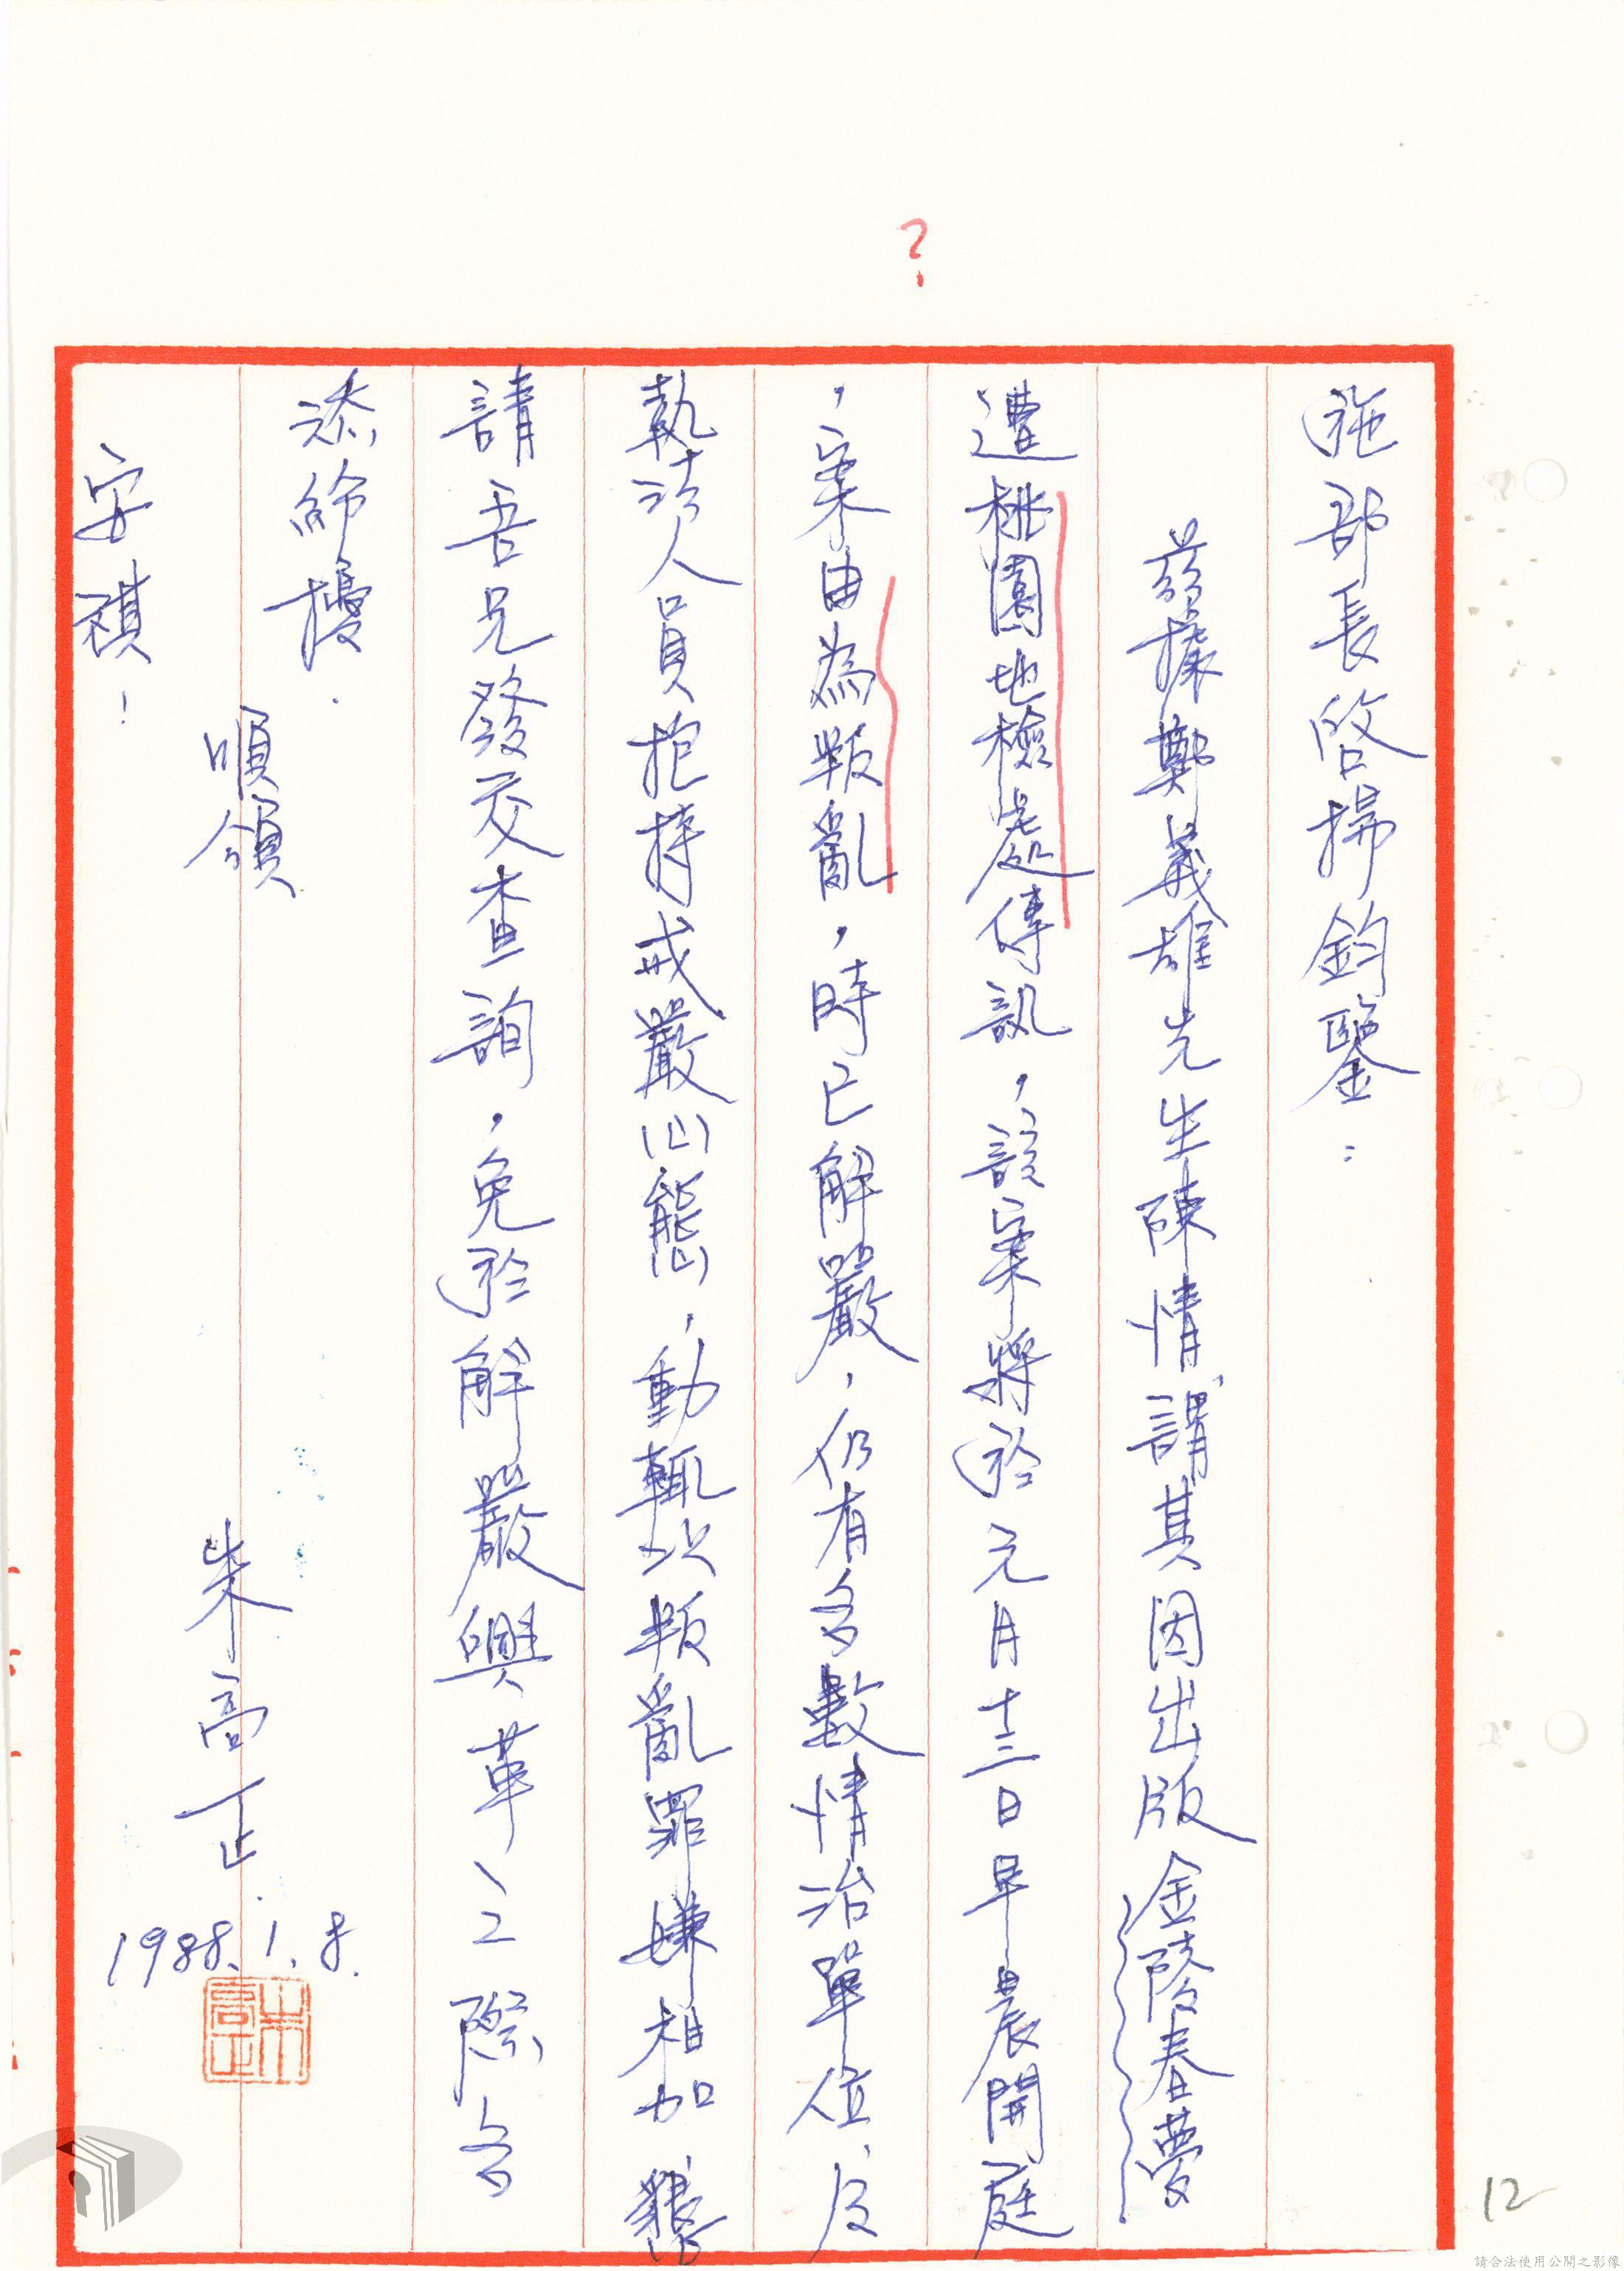 ?
施部長啓揚鈞鑒：
茲據鄭義雄先生陳情，謂其因出版金陵春夢
遭桃園地檢處傳訊，該案將於元月十三日早晨開庭
，案由為叛亂，時已解嚴，仍有多數情治單位、及
執法人員抱持戒嚴心態，動輒以叛亂罪嫌相加，懇
請吾兄發交查詢，免於解嚴興革之際多
添紛擾．
順頌
安祺！
朱高正．
1988.1.8.
朱高正
12
請合法使用公開之影像